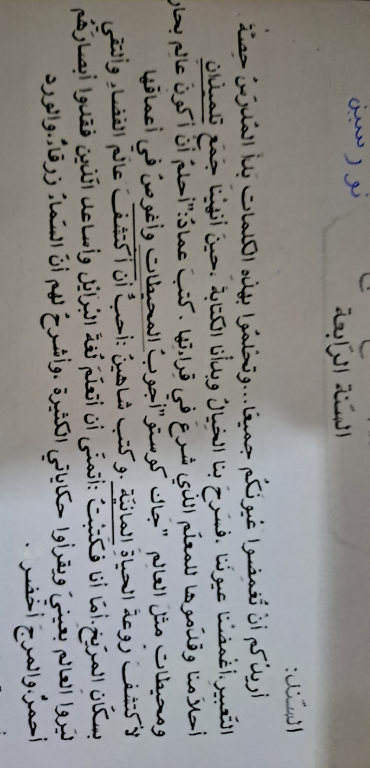 نورسين
السنة الرابعة
السّند:
أريدُكم أنْ تُغمِضوا عُيونَكُم جميعًا...وتحْلمُوا بهذِه الكلماتِ بَدأ المُدرّسُ حِصّةَ
التّعبيرِ.أغمضْنا عيونَنا ،فسَرَحَ بنا الخيالُ وبدأنا الكتابةَ .حينَ أنهيْنا جَمَعَ تلميذان
أحلامَنا وقدّموها للمعلّم الّذي شرعَ في قراءتِها . كتبَ عمادٌ:"أحلمُ أنْ أكونَ عالِمَ بحارٍ
ومحيطاتٍ مثلَ العالِمِ "جاك كوستو"أجوبُ المحيطاتِ وأغوصُ في أعماقِها
لأكتشفَ روعةَ الحياةِ المائيّة .وكتبَ شاهينُ :أحبُّ أن أكتشفَ عالَم الفضاءِ وألتقيَ
بسكّانِ المرّيخِ.أمّا أنا فكتبْتُ :أتمنّى أن أتعلّمَ لغةَ البرايْلِ وأساعدَ الّذينَ فقدُوا أبصارَهُم
ليَروا العالمَ بعينيَّ ويقرأوا حكاياتي الكثيرة ،وأشرحُ لهم أنّ السّماءَ زرقاءُ،والورد
أحمرُ،والمرج أخضر .